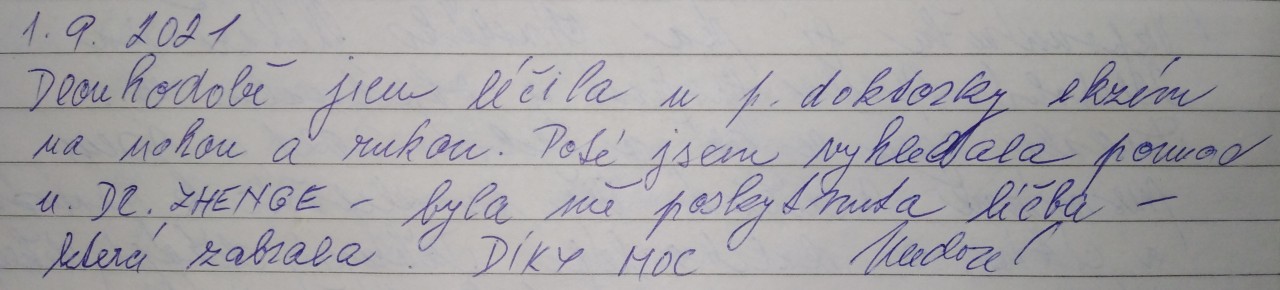 1. 9. 2021
Dlouhodobě jsem léčila u p. doktorky ekzém
na nohou a rukou. Poté jsem vyhledala pomoc
u. DR. ZHENGE - byla mě poskytnuta léčba -
která zabrala. DÍKY MOC